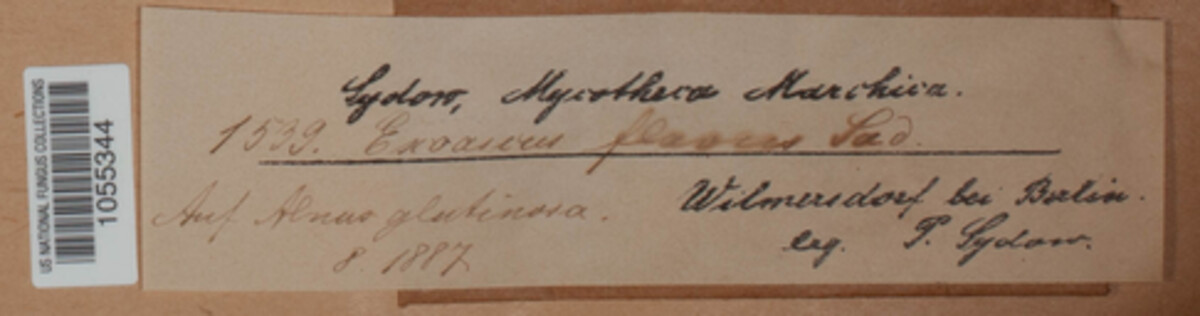 US NATIONAL FUNGUS COLLECTIONS
1055344
Sydow, Mycotheca Marchica.
1539. Exoascus flavus Sad.
Auf Alnus glutinosa.
8. 1887
Wilmersdorf bei Berlin.
leg. P. Sydow.